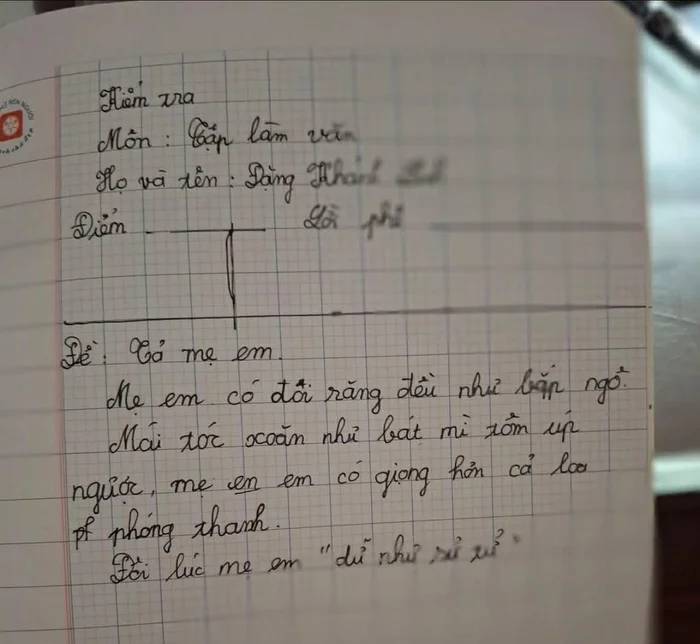 Kiểm tra
Môn: Tập làm văn
Họ và tên: Đặng Khánh
Điểm Lời phê
Đề: Tả mẹ em.
Mẹ em có đôi răng đều như bắp ngô.
Mái tóc xoăn như bát mì tôm úp
ngược, mẹ en em có giọng hơn cả loa
pf phóng thanh.
Đôi lúc mẹ em "dữ như sư tử"